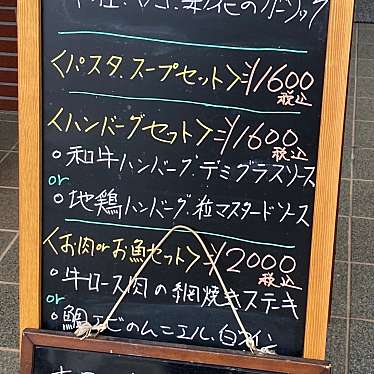 〈パスタ.スープセット〉¥1600
税込
〈ハンバーグセット〉¥1600
税込
○和牛ハンバーグ.デミグラスソース
or
○地鶏ハンバーグ.粒マスタードソース
〈お肉orお魚セット〉¥2000
税込
○牛ロース肉の網焼きステーキ
or
○鯛エビのムニエル.白ワイン